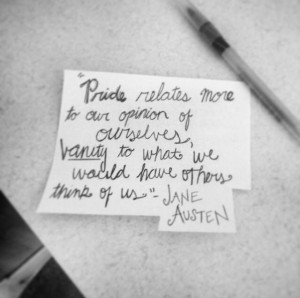 "Pride relates more
to our opinion of
ourselves,
vanity to what we
would have others
think of us"-JANE
AUSTEN